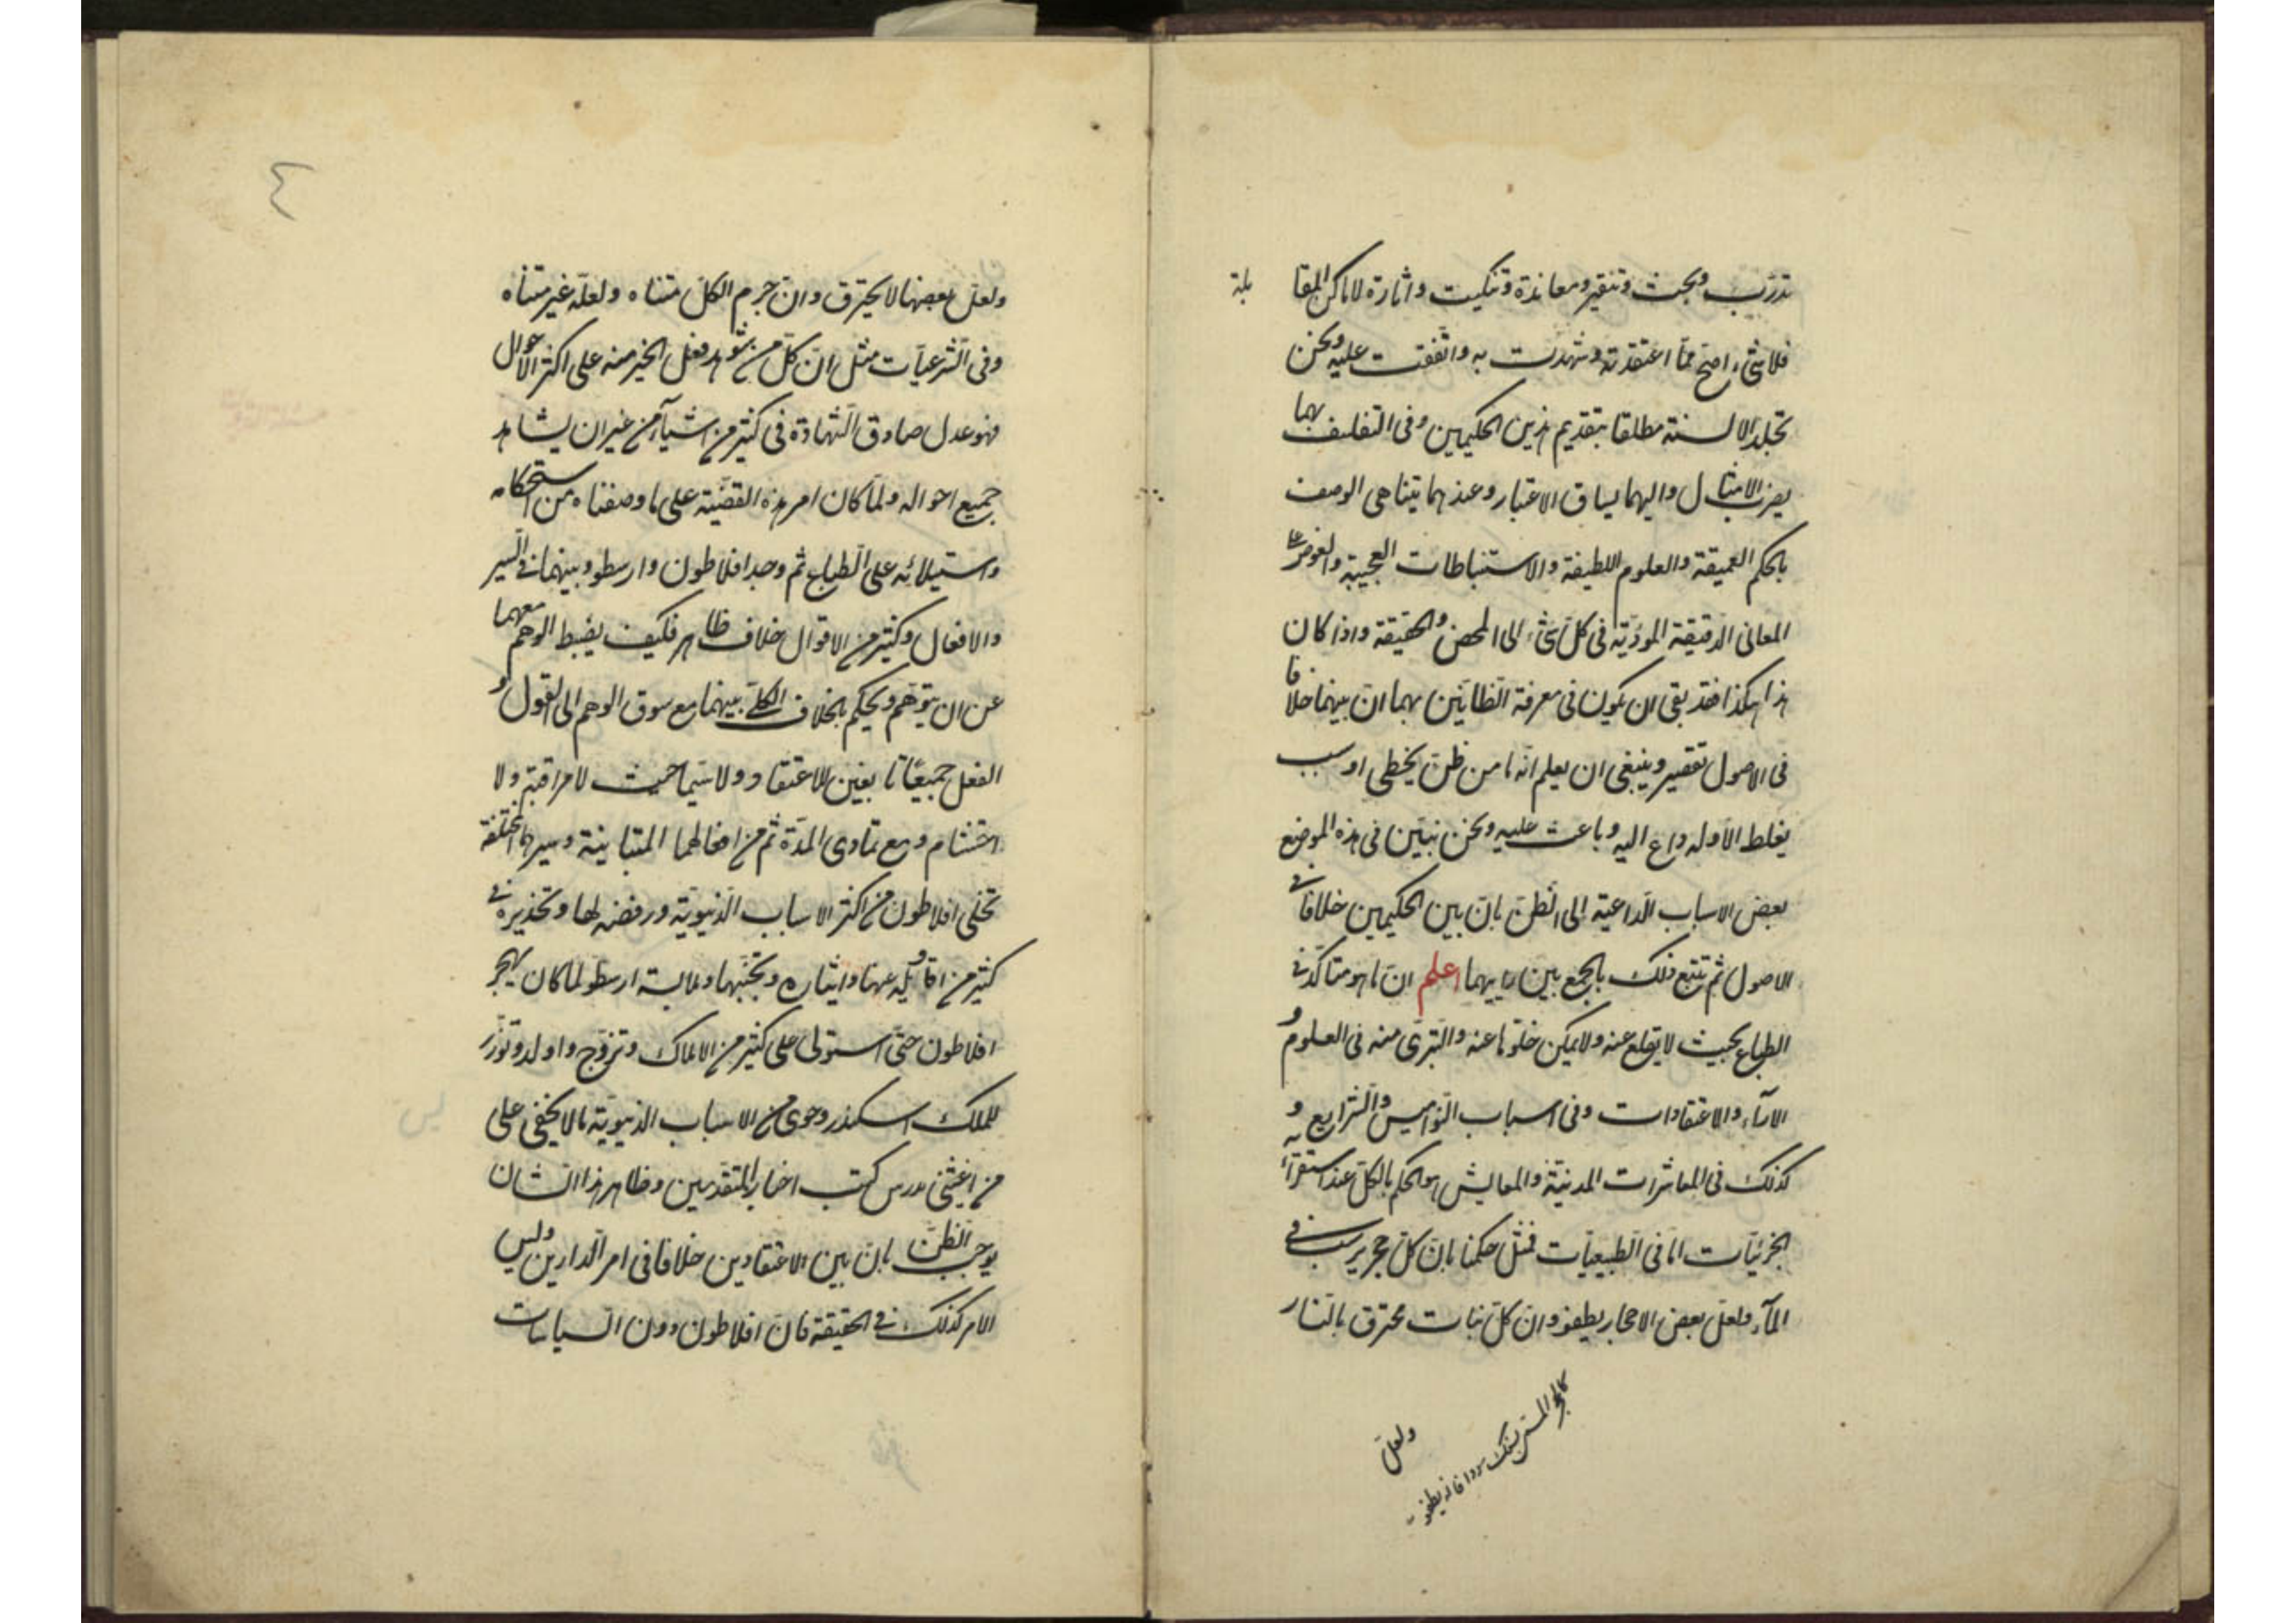 تدرّب وبحث وتنقير ومعاندة وتنكيت واثارة لاماكن المقا بلة
فلا شئ اصح ممّا اعتقدته وشهدت به واتّفقت عليه ونحن
نجد الالسنة مطلقا بتقديم هذين الحكيمين وفى التفلسف بهما
يضرب الامثال واليهما يساق الاعتبار وعندهما يتناهى الوصف
بالحكم العميقة والعلوم اللطيفة والاستنباطات العجيبة والغوص على
المعانى الدقيقة المؤدّية فى كل شئ الى المحض والحقيقة واذا كان
هذا هكذا فقد بقى ان يكون فى معرفة الظانّين بهما انّ بينهما خلافا
فى الاصول تقصير وينبغى ان يعلم انّه ما من ظنّ يخطى او سبب
يغلط الا وله داع اليه وباعث عليه ونحن نبيّن فى هذه الموضع
بعض الاسباب الدّاعية الى الظنّ بانّ بين الحكيمين خلافا فى
الاصول ثم نتبع ذلك بالجمع بين راييهما اعلم ان ما هو متاكّد فى
الطباع بحيث لا يقلع عنه ولا يمكن خلوّها عنه والتبرّى منه فى العلوم و
الآراء والاعتقادات وفى اسباب النّواميس والشّرايع و
كذلك فى المعاشرات المدنيّة والمعايش هو الحكم بالكلّ عند استقراء
الجزئيّات امّا فى الطبيعيّات فمثل حكمنا بانّ كلّ حجر يرسب فى
المآء ولعل بعض الاحجار يطفو وانّ كلّ نبات محترق بالنّار
ولعلّ
ولعلّ بعضها لا يحترق وانّ جرم الكلّ متناه ولعلّه غير متناه
وفى الشّرعيّات مثل انّ كلّ من شوهد فعل الخير منه على اكثر الاحوال
فهو عدل صادق الشّهادة فى كثير من اشيآء من غير ان يشاهد
جميع احواله ولمّا كان امر هذه القضيّة على ما وصفناه من استحكامه
واستيلائه على الطباع ثم وجد افلاطون وارسطو وبينهما فى السّير
والافعال وكثير من الاقوال خلاف ظاهر فكيف يضبط الوهم معهما
عن ان يتوهّم ويحكم بخلاف الكلّى بينهما مع سوق الوهم الى القول و
الفعل جميعًا تابعين للاعتقاد ولا سيّما حيث لا مراقبة ولا
احتشام ومع تمادى المدّة ثم من افعالهما المتباينة وسيرهما المختلفة
تخلّى افلاطون من اكثر الاسباب الدّنيويّة ورفضه لها وتحذيره فى
كثير من اقاويله عنها وايثاره وتجنّبها وملابسة ارسطو لما كان يهجر
افلاطون حتّى استولى على كثير من الاملاك وتزوّج واولد وتوزّر
للملك اسكندر وحوى من الاسباب الدنيويّة ما لا يخفى على
من اعتنى بدرس كتب اخبار المتقدمين وظاهر هذا الشان
يوجب الظنّ بانّ بين الاعتقادين خلافا فى امر الدّارين وليس
الامر كذلك فى الحقيقة فانّ افلاطون دون السّياسات